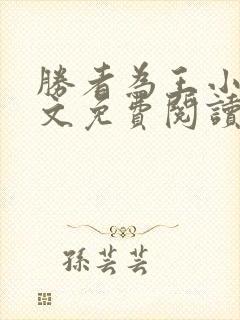 勝者為王小
文免費閱讀
孫芸芸